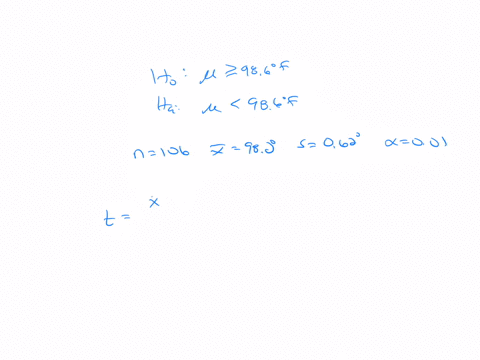 H₀: μ ≥ 98.6°F
Hₐ: μ < 98.6°F
n=106 x̄ = 98.2° s = 0.62° α=0.01
t = x